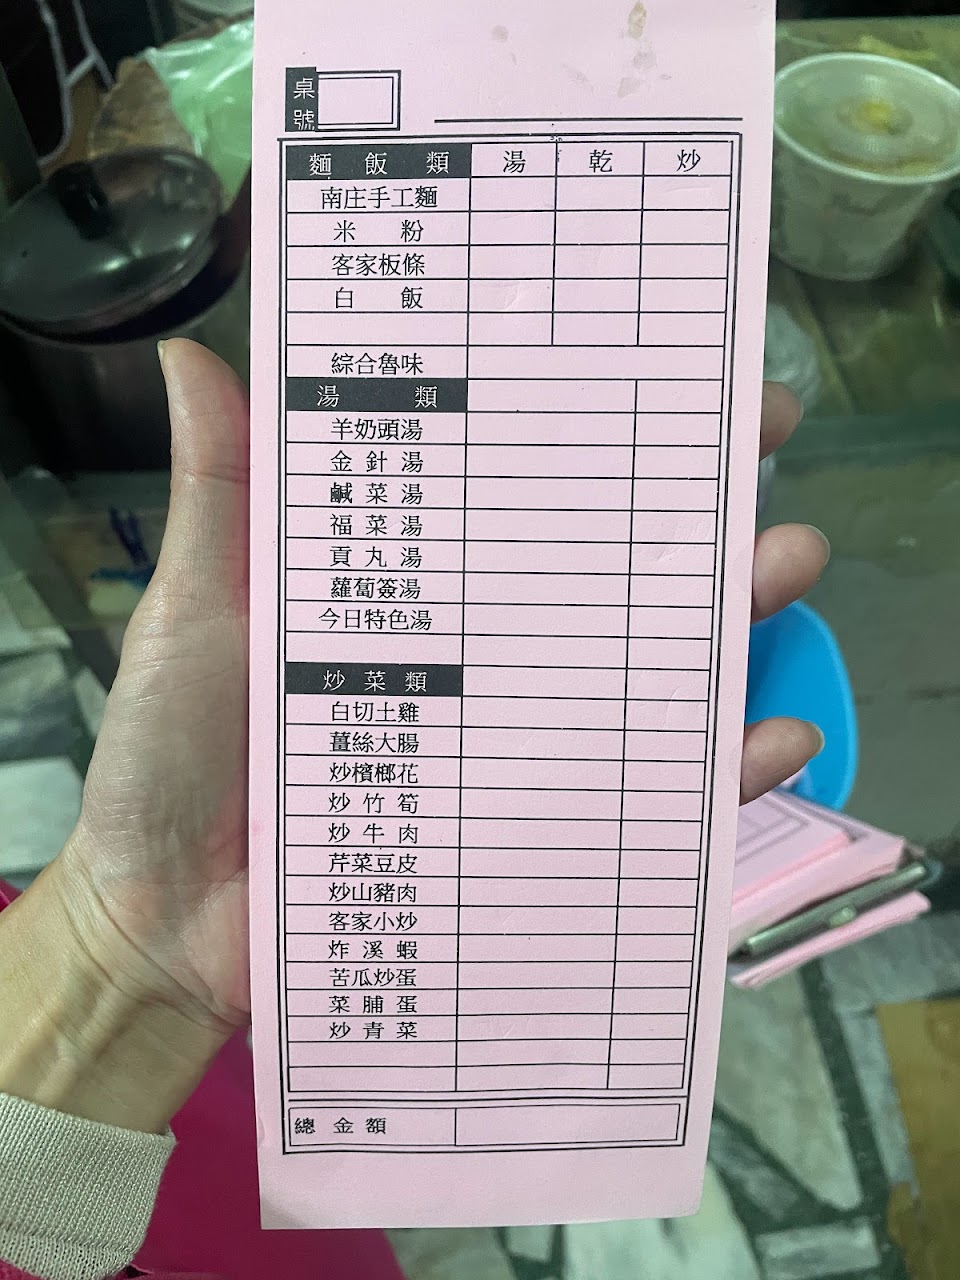 桌號
麵飯類 湯 乾 炒
南庄手工麵
米粉
客家板條
白飯
綜合魯味
湯類
羊奶頭湯
金針湯
鹹菜湯
福菜湯
貢丸湯
蘿蔔簽湯
今日特色湯
炒菜類
白切土雞
薑絲大腸
炒檳榔花
炒竹筍
炒牛肉
芹菜豆皮
炒山豬肉
客家小炒
炸溪蝦
苦瓜炒蛋
菜脯蛋
炒青菜
總金額